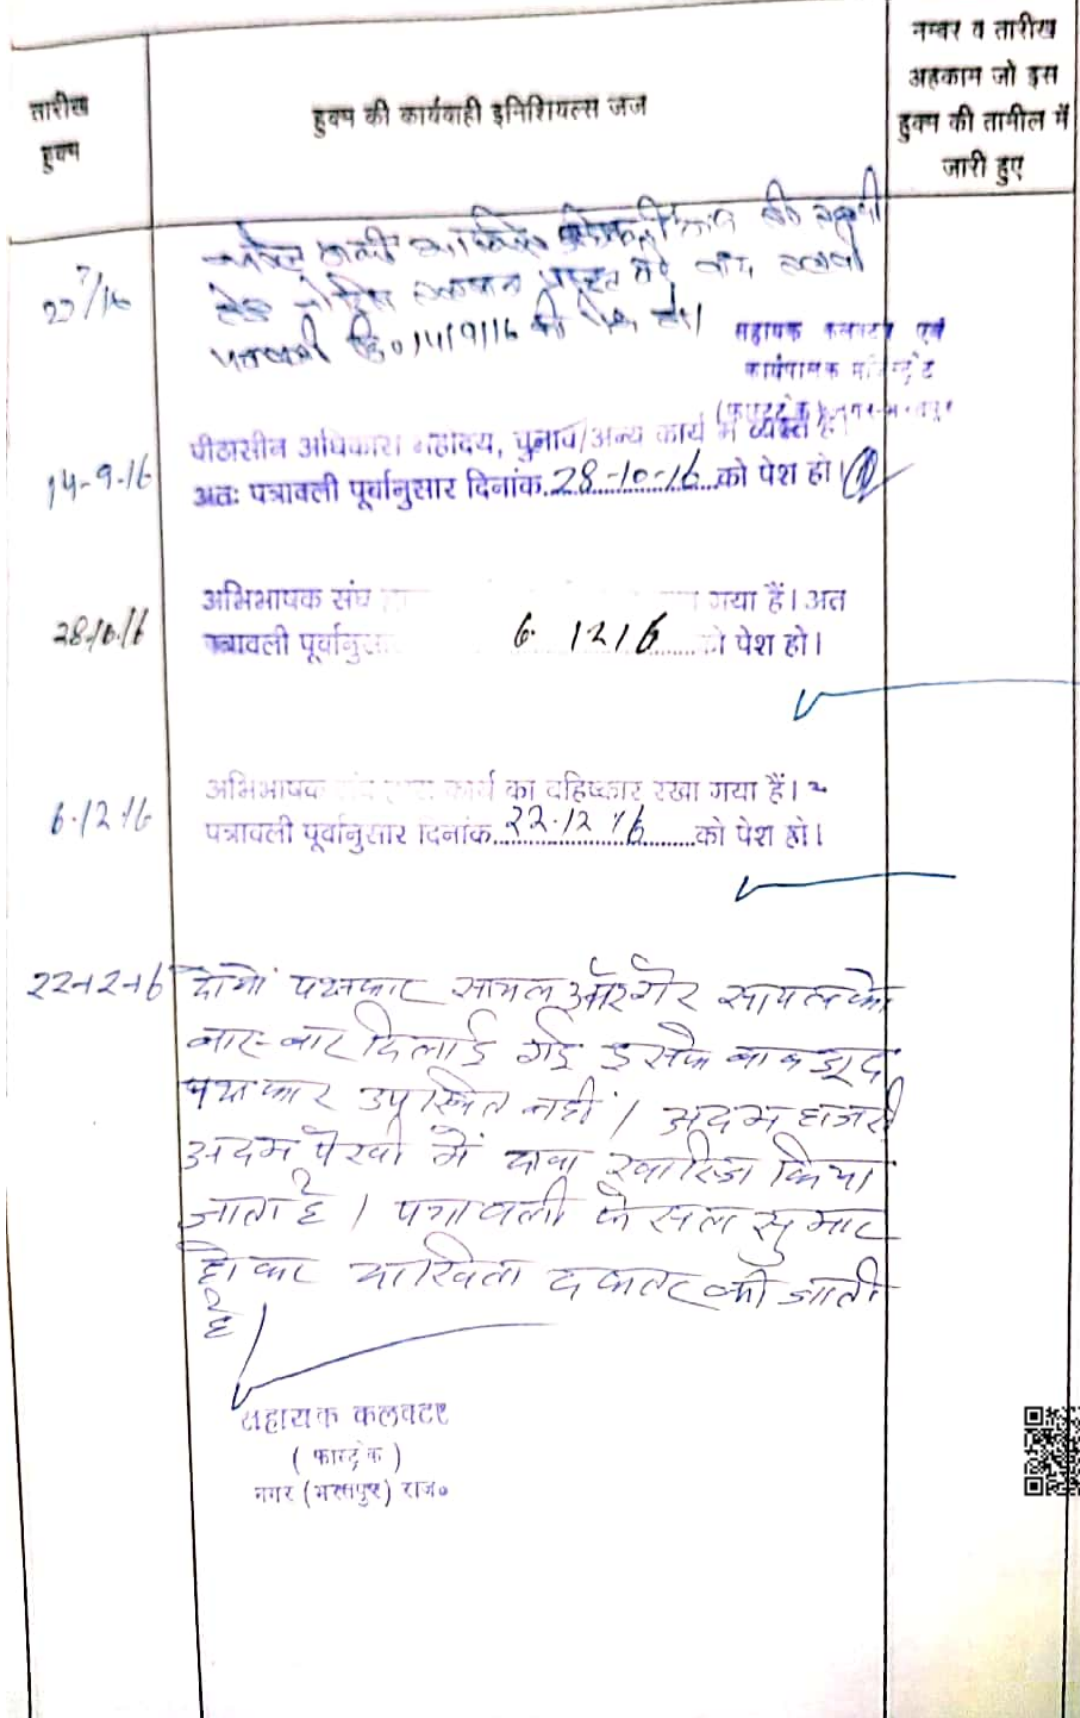 नम्बर व तारीख
अहकाम जो इस
हुक्म की तामील में
जारी हुए
तारीख
हुक्म
हुक्म की कार्यवाही इनिशियल्स जज
7/16
पत्रावली दि० 14/9/16 को पेश हो।
सहायक कलक्टर एवं
कार्यपालक
14-9-16
पीठासीन अधिकारी महोदय, चुनाव/अन्य कार्य में व्यस्त है।
अतः पत्रावली पूर्वानुसार दिनांक 28-10-16 को पेश हो।
28.10.16
अभिभाषक संघ गया हैं। अत
पत्रावली पूर्वानुसार 6.12.16 को पेश हो।
6.12.16
अभिभाषक कार्य का बहिष्कार रखा गया हैं।
पत्रावली पूर्वानुसार दिनांक 22.12.16 को पेश हो।
22-12-16
दोनों पक्षकार सायल और गैर सायल को
बार-बार दिलाई गई इसके बावजूद
पक्षकार उपस्थित नहीं। अदम हाजरी
अदम पैरवी में दावा खारिज किया
जाता है। पत्रावली फैसल सुमार
होकर दाखिल दफ्तर की जाती
है।
सहायक कलक्टर
(फास्ट्रेक)
नगर (भरतपुर) राज०